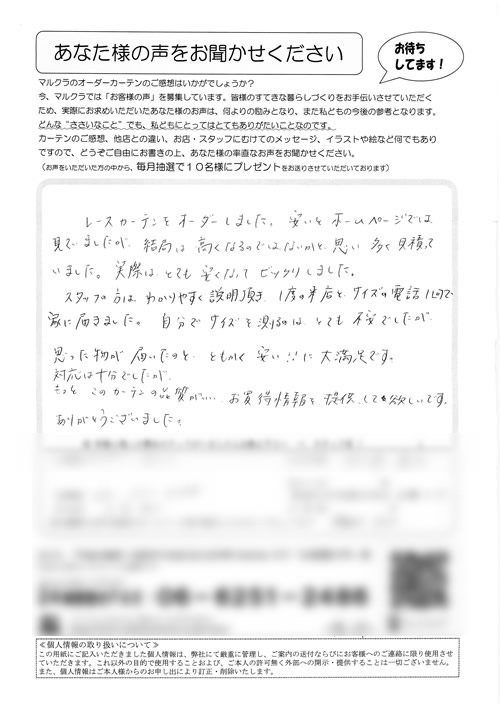 あなた様の声をお聞かせください
お待ち
してます!
マルクラのオーダーカーテンのご感想はいかがでしょうか?
今、マルクラでは「お客様の声」を募集しています。皆様のすてきな暮らしづくりをお手伝いさせていただく
ため、実際にお求めいただいたあなた様のお声は、何よりの励みとなり、また私どもの今後の参考となります。
どんな“ささいなこと”でも、私どもにとってはとてもありがたいことなのです。
カーテンのご感想、他店との違い、お店・スタッフにむけてのメッセージ、イラストや絵など何でもあり
ですので、どうぞご自由にお書きの上、あなた様の率直なお声をお聞かせください。
(お声をいただいた方の中から、毎月抽選で10名様にプレゼントをお送りさせていただいております)
レースカーテンをオーダーしました。安いとホームページでは
見ていましたが 結局は高くなるのではないかと思い 多く見積って
いました。実際は とても安くなって ビックリしました。
スタッフの方は わかりやすく説明頂き 1度の来店と サイズの電話1回で
家に届きました。自分でサイズを測るのは とても不安でしたが
思った物が届いたのと ともかく安い!!に大満足です。
対応は十分でしたが
もっと このカーテンの品質がいい、お買得情報を提供しても欲しいです。
ありがとうございました。
06-6251-2486
≪個人情報の取り扱いについて≫
この用紙にご記入いただきました個人情報は、弊社にて厳重に管理し、ご案内の送付ならびにお客様へのご連絡に限り使用させ
ていただきます。これ以外の目的で使用することおよび、ご本人の許可無く外部への開示・提供することは一切ございません。
また、個人情報はご本人様からのお申し出により訂正・削除いたします。